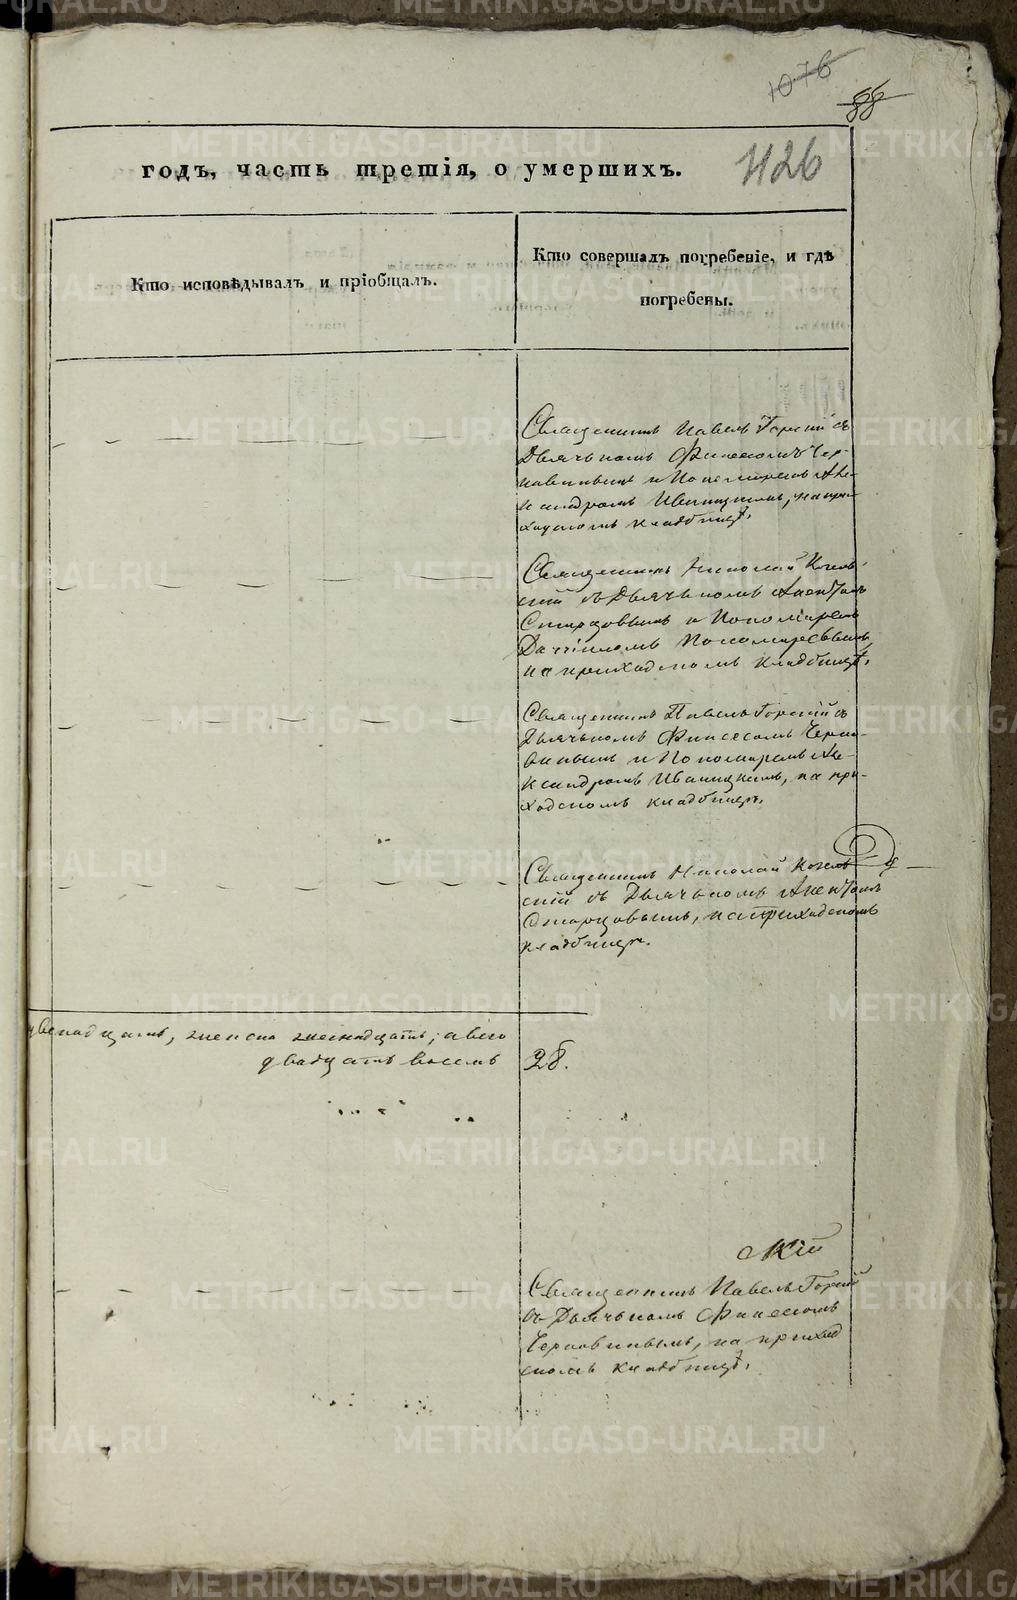 1076
88
годъ, часть третія, о умершихъ.
1126
Кто исповѣдывалъ и пріобщалъ.
Кто совершалъ погребеніе, и гдѣ
погребены.
Священникъ Павелъ Горскій съ
Дьячькомъ Финеесомъ Чер-
навинымъ и Пономаремъ Але-
ксандромъ Иваницкимъ, на при-
ходскомъ кладбищѣ.
Священникъ Николай Козель-
скій съ Дьячькомъ
Старцовымъ и Пономаремъ
Даніиломъ Пономаревымъ,
на приходскомъ кладбищѣ.
Священникъ Павелъ Горскій съ
Дьячькомъ Финеесомъ Черна-
винымъ и Пономаремъ Але-
ксандромъ Иваницкимъ, на при-
ходскомъ кладбищѣ.
Священникъ Николай Козель
скій съ Дьячькомъ
Старцовымъ, на приходскомъ
кладбищѣ.
двенадцать, женска шеснадцать, а всего
двадцать восемь
28.
скій
Священникъ Павелъ Горскій
съ Дьячькомъ Финеесомъ
Чернавинымъ, на приход
скомъ кладбищѣ.
METRIKI.GASO-URAL.RU